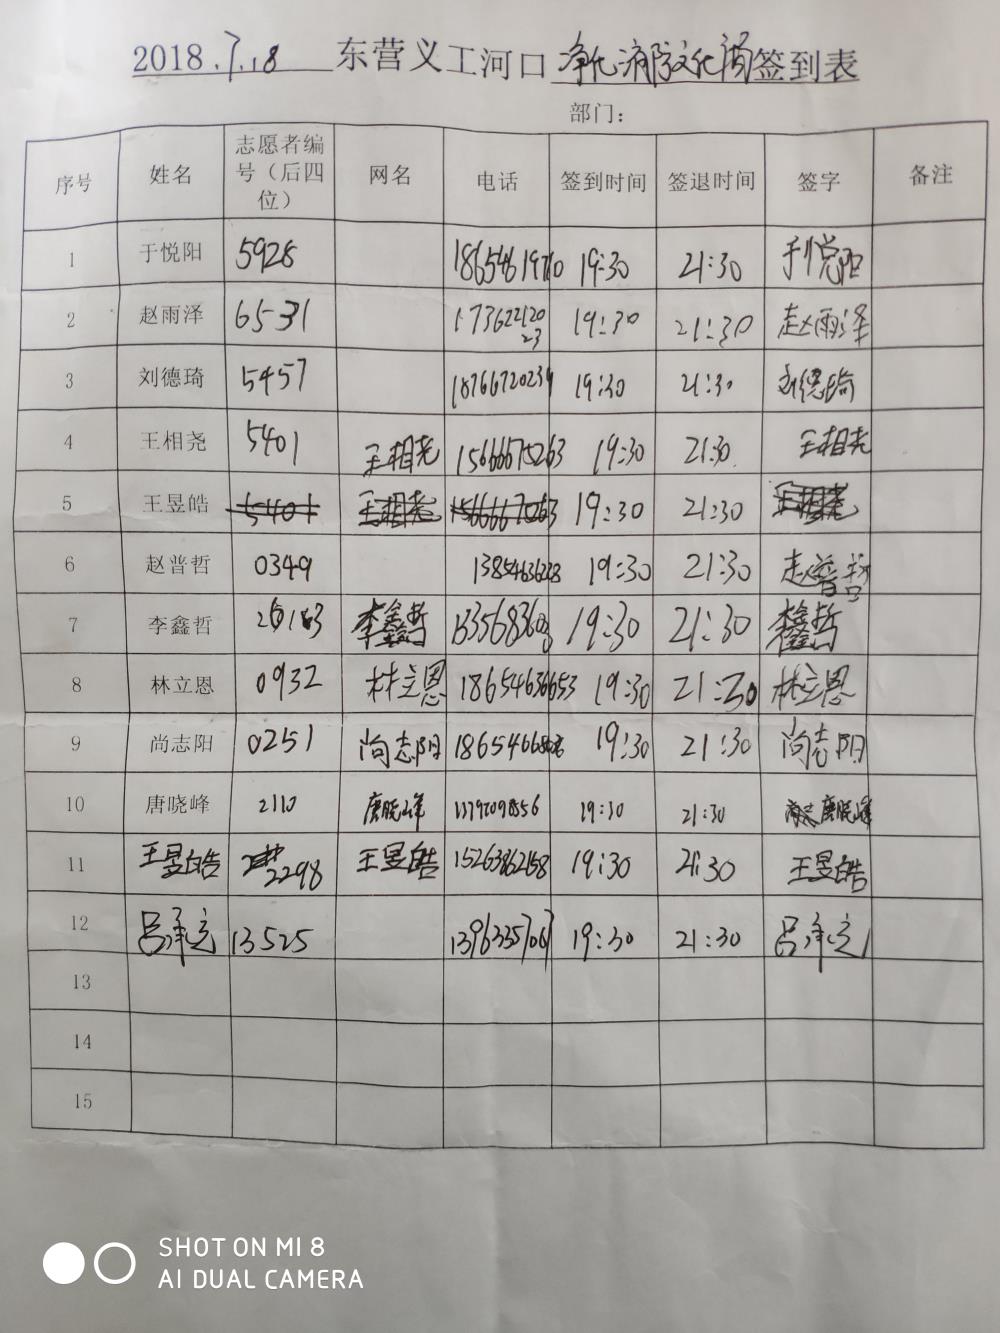 2018.7.18 东营义工河口净化消防文化湖签到表
部门：
序号 姓名 志愿者编号（后四位） 网名 电话 签到时间 签退时间 签字 备注
1 于悦阳 5928 19:30 21:30 于悦阳
2 赵雨泽 6531 17362212023 19:30 21:30 赵雨泽
3 刘德琦 5457 18766720239 19:30 21:30 刘德琦
4 王相尧 5401 王相尧 15666675263 19:30 21:30 王相尧
5 王昱皓 5401 王相尧 19:30 21:30 王相尧
6 赵普哲 0349 19:30 21:30 赵普哲
7 李鑫哲 李鑫哲 19:30 21:30 李鑫哲
8 林立恩 0932 林立恩 18654636653 19:30 21:30 林立恩
9 尚志阳 0251 尚志阳 19:30 21:30 尚志阳
10 唐晓峰 2110 唐晓峰 19:30 21:30 唐晓峰
11 王昱皓 2298 王昱皓 15263862158 19:30 21:30 王昱皓
12 吕承立 13525 19:30 21:30 吕承立
13
14
15
SHOT ON MI 8
AI DUAL CAMERA